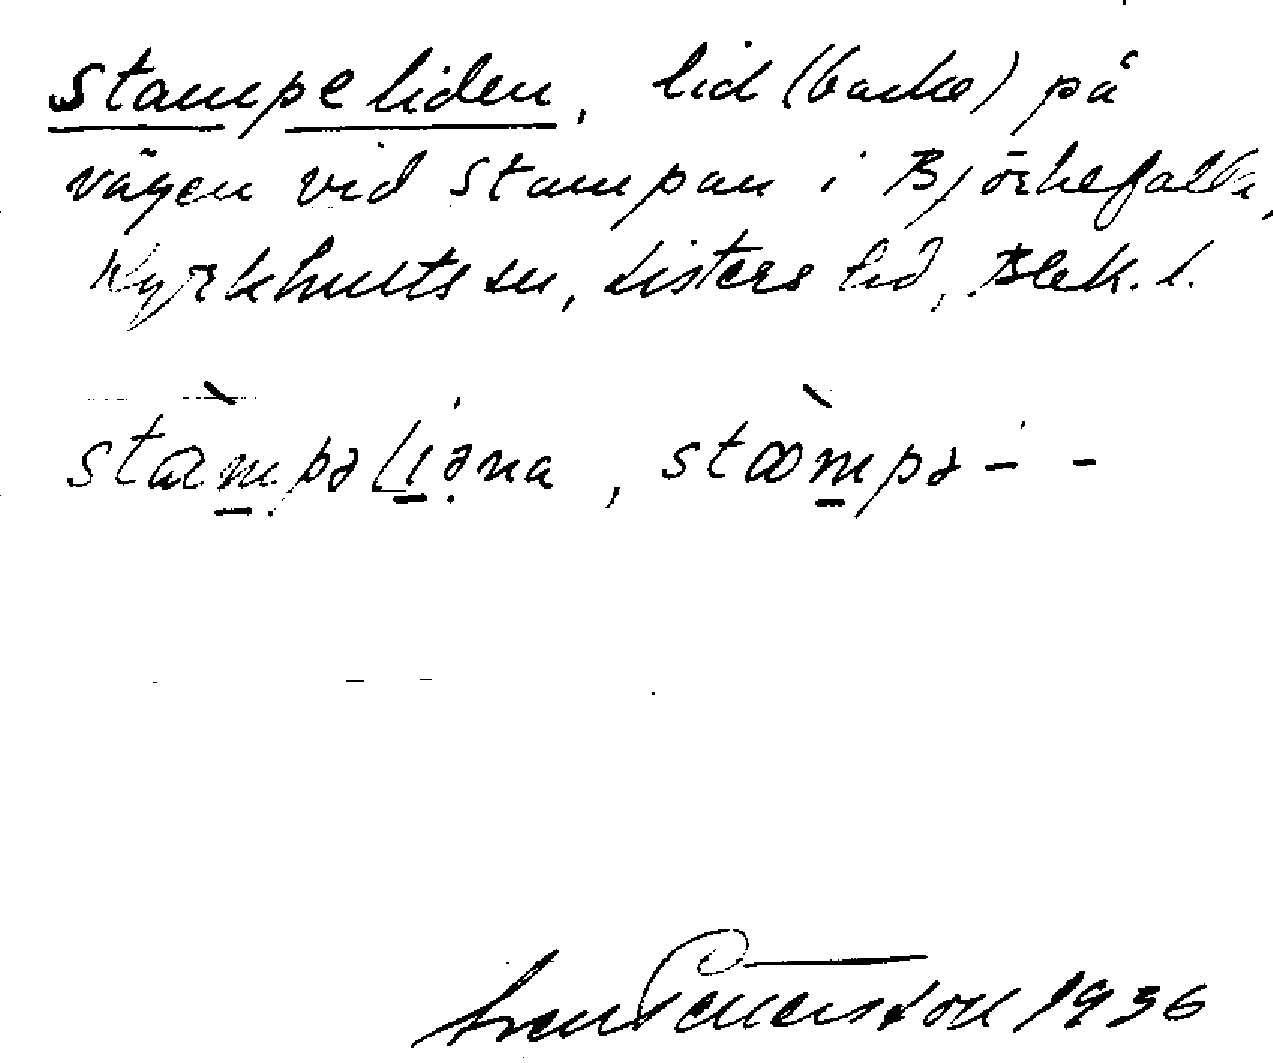 Stampeliden, lid (backe) på
vägen vid Stampan i Björkefalla,
Kyrkhults sn, Listers hd, Blek. l.
stàmpəliəna, stàmpə - -
Sven Pettersson 1936